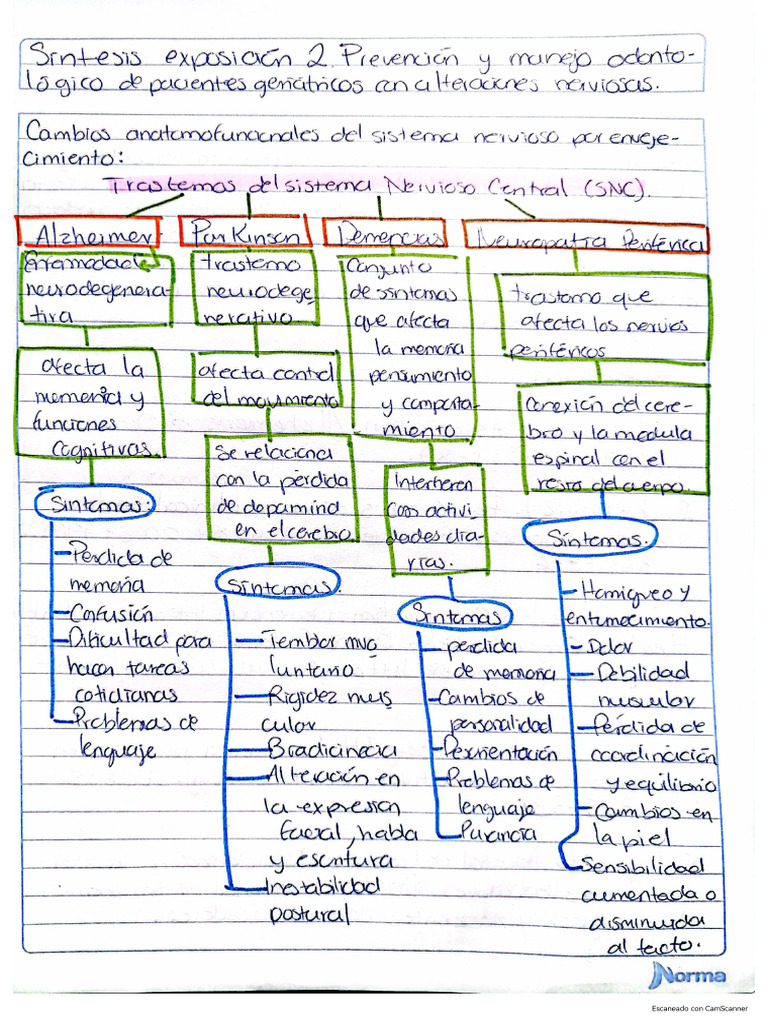 Síntesis exposición 2. Prevención y manejo odonto-
lógico de pacientes geriátricos con alteraciones nerviosas.
Cambios anatomofuncionales del sistema nervioso por enveje-
cimiento:
Trastornos del sistema Nervioso Central (SNC).
Alzheimer
enfermedad
neurodegenera-
tiva
afecta la
memoria y
funciones
cognitivas.
Síntomas:
Pérdida de
memoria
Confusión
Dificultad para
hacer tareas
cotidianas
Problemas de
lenguaje
Parkinson
trastorno
neurodege
nerativo.
afecta control
del movimiento
Se relaciona
con la pérdida
de dopamina
en el cerebro
Síntomas.
Temblor invo
luntario
Rigidez mus
cular
Bradicinecia
Alteración en
la expresión
facial, habla
y escritura
Inestabilidad
postural
Demencias
Conjunto
de síntomas
que afecta
la memoria
pensamiento
y comporta-
miento
Interfieren
con activi
dades dia-
rias.
Síntomas
perdida
de memoria
Cambios de
personalidad
Desorientación
Problemas de
lenguaje
Paranoia
Neuropatía Periférica
trastorno que
afecta los nervios
periféricos
Conexión del cere-
bro y la medula
espinal con el
resto del cuerpo.
Síntomas.
Hormigueo y
entumecimiento.
Dolor
Debilidad
muscular
Pérdida de
coordinación
y equilibrio
Cambios en
la piel
Sensibilidad
aumentada o
disminuida
al tacto.
Norma
Escaneado con CamScanner